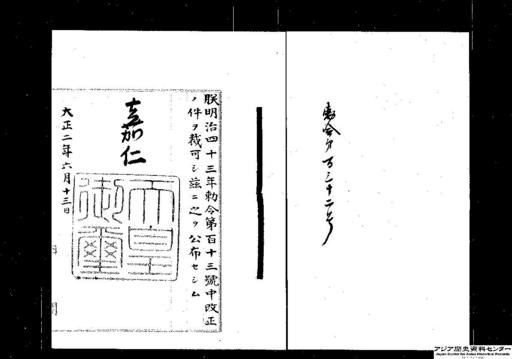 勅令第百三十二号
朕明治四十三年勅令第百十三號中改正
ノ件ヲ裁可シ茲ニ之ヲ公布セシム
嘉仁
天皇御璽
大正二年六月十三日
内閣
アジア歴史資料センター
Japan Center for Asian Historical Records